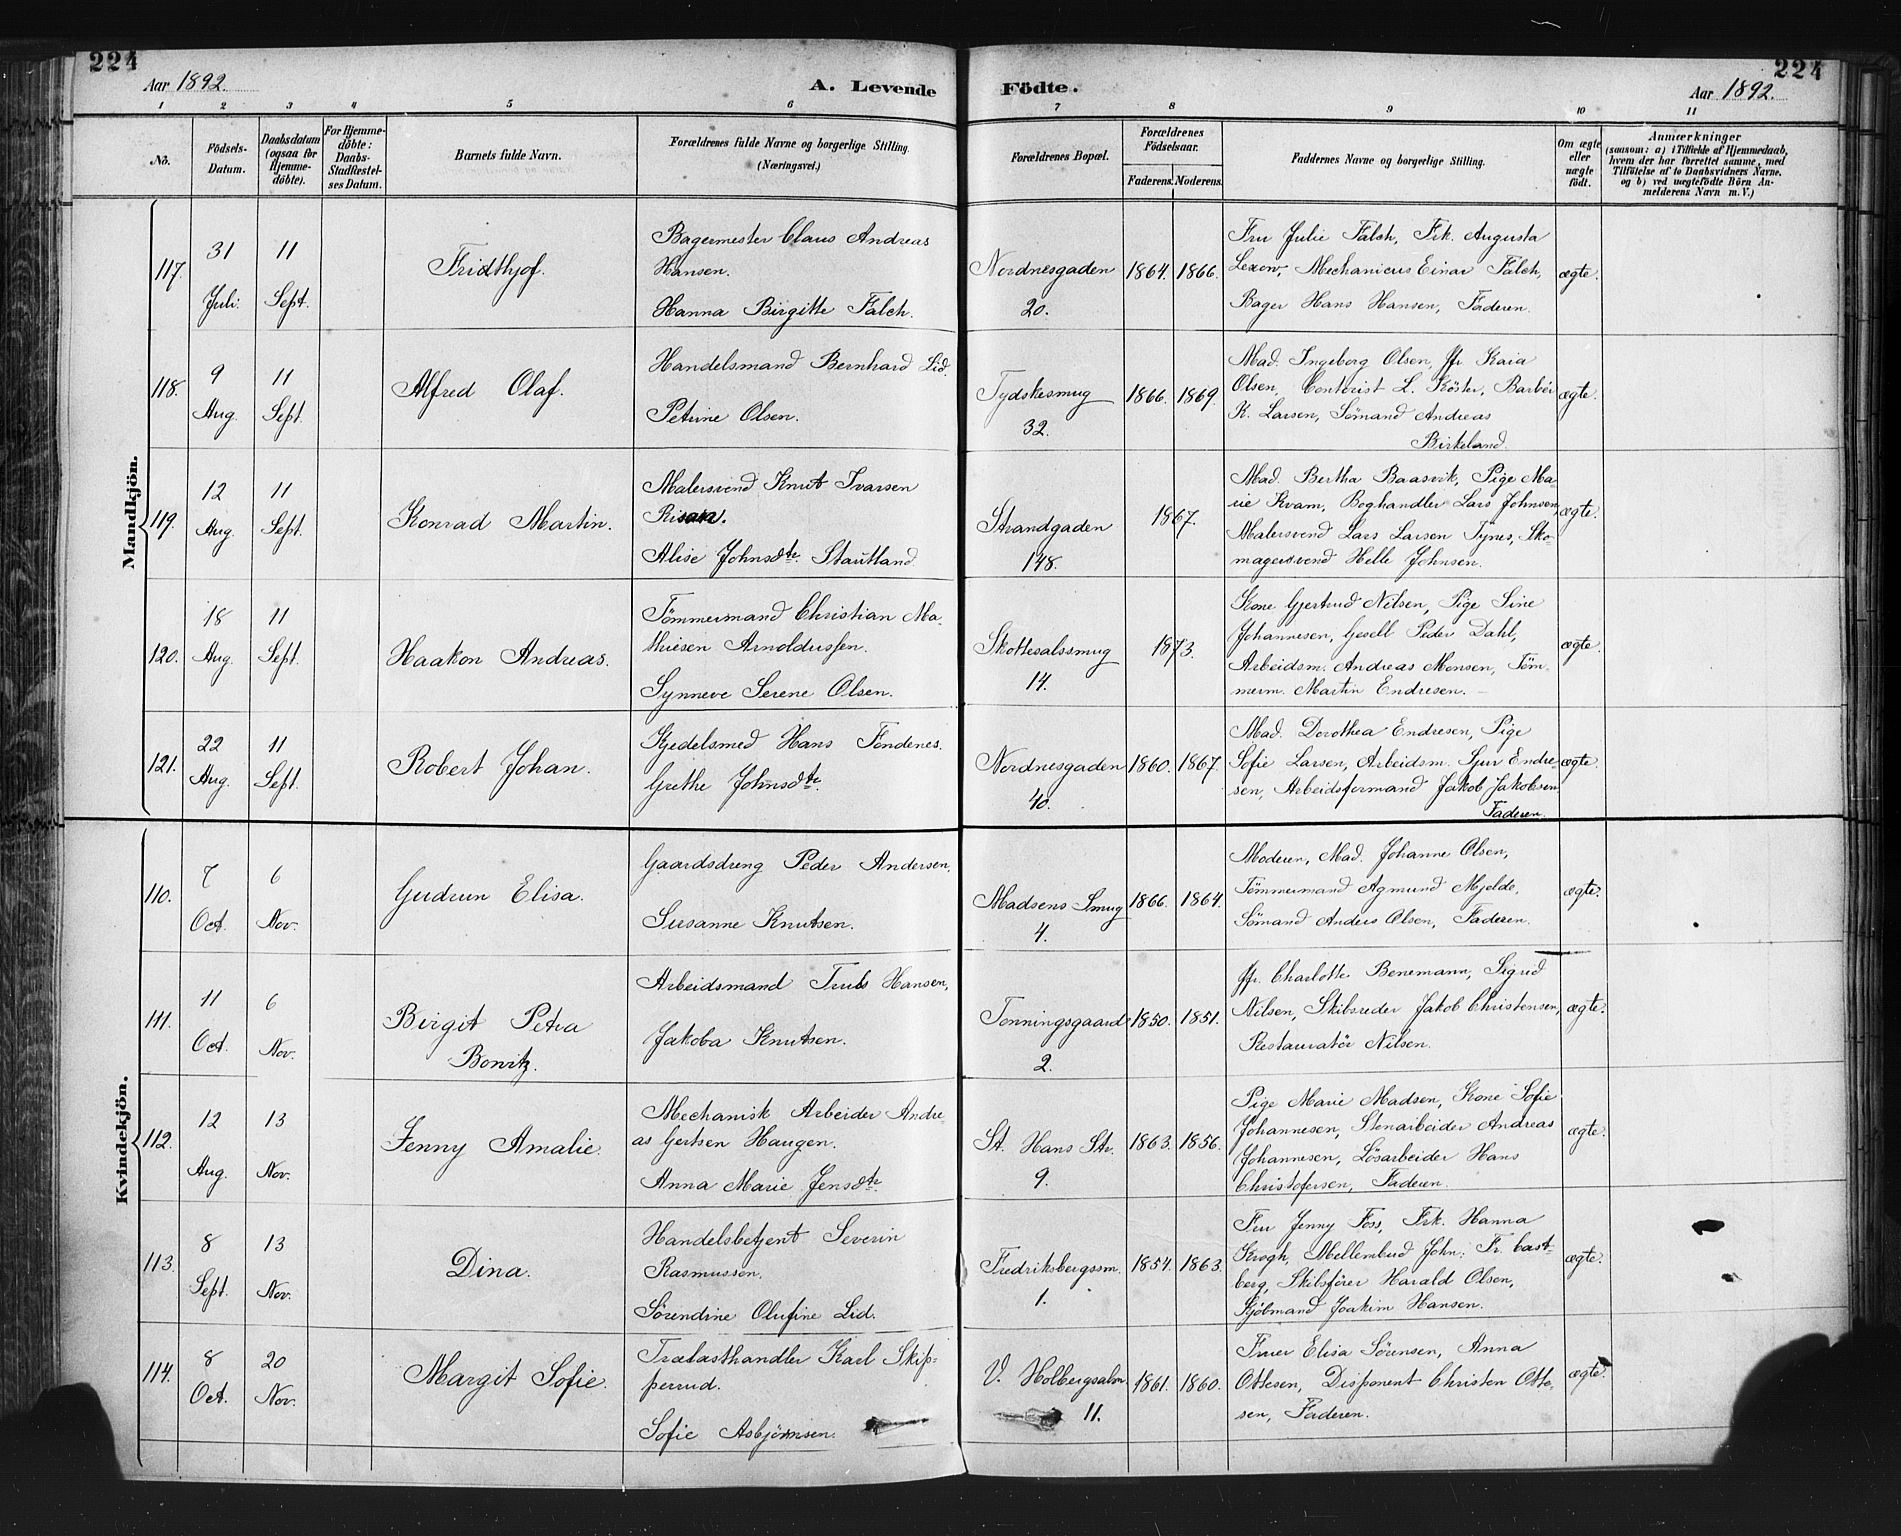 224
224
Aar 1892.
A. Levende
Födte.
Aar 1892.
1 2 3 4 5 6 7 8 9 10 11
No.
Födsels-Datum.
Daabsdatum (ogsaa for Hjemme-döbte).
For Hjemme-döbte: Daabs-Stadfæstel-ses Datum.
Barnets fulde Navn.
Forældrenes fulde Navne og borgerlige Stilling.
(Næringsvei.)
Forældrenes Bopæl.
Forældrenes Födselsaar.
Faderens. Moderens.
Faddernes Navne og borgerlige Stilling.
Om ægte eller uægte födt.
Anmærkninger
(saasom: a) i Tilfælde af Hjemmedaab, hvem der har forrettet samme, med Tilföielse af to Daabsvidners Navne, og b) ved uægtefödte Börn An-melderens Navn m.V.)
Mandkjön.
117. 31 Juli. 11 Sept. Fridthjof.
Bagermester Claus Andreas
Hansen.
Hanna Birgitte Falch.
Nordnesgaden
20.
1864. 1866.
Fru Julie Falch, Frk. Augusta
Lexow, Mechanicus Einar Falch,
Bager Hans Hansen, Faderen.
ægte.
118. 9 Aug. 11 Sept. Alfred Olaf.
Handelsmand Bernhard Lid.
Petrine Olsen.
Tydskesmug
32.
1866. 1869.
Mad. Ingeborg Olsen, Jfr. Kaia
Olsen, Contorist L. Köster, Barbér
K. Larsen, Sömand Andreas
Birkeland.
ægte.
119. 12 Aug. 11 Sept. Konrad Martin.
Malersvend Knut Ivarsen
Risan.
Alise Johnsdtr. Stautland.
Strandgaden
148.
1867.
Mad. Bertha Baasvik, Pige Ma-
rie Kvam, Boghandler Lars Johnsen,
Malersvend Lars Larsen Tynes, Sko-
magersvend Helle Johnsen.
ægte.
120. 18 Aug. 11 Sept. Haakon Andreas.
Tömmermand Christian Ma-
thiesen Arnoldussen.
Synneve Serene Olsen.
Skottesalssmug
14.
1873.
Kone Gjertrud Nilsen, Pige Sine
Johannesen, Gesell Peder Dahl,
Arbeidsm. Andreas Monsen, Töm-
merm. Martin Endresen.
ægte.
121. 22 Aug. 11 Sept. Robert Johan.
Kjedelsmed Hans Fondenes.
Grethe Johnsdtr.
Nordnesgaden
40.
1860. 1867.
Mad. Dorothea Endresen, Pige
Sofie Larsen, Arbeidsm. Sjur Endre-
sen, Arbeidsformand Jakob Jakobsen
Faderen.
ægte.
Kvindekjön.
110. 7 Oct. 6 Nov. Gudrun Elisa.
Gaardsdreng Peder Andersen,
Susanne Knutsen.
Madsens Smug
4.
1866. 1864.
Moderen, Mad. Johanne Olsen,
Tömmermand Agmund Mjelde,
Sömand Anders Olsen, Faderen.
ægte.
111. 11 Oct. 6 Nov. Birgit Petra
Bonvitz.
Arbeidsmand Truls Hansen,
Jakoba Knutsen.
Tonningsgaard
2.
1850. 1851.
Jfr. Charlotte Benemann, Sigrid
Nilsen, Skibsreder Jakob Christensen,
Restauratör Nilsen.
ægte.
112. 12 Aug. 13 Nov. Jenny Amalie.
Mechanisk Arbeider Andre-
as Gertsen Haugen.
Anna Marie Jensdtr.
St. Hans Str.
9.
1863. 1856.
Pige Marie Madsen, Kone Sofie
Johannesen, Stenarbeider Andreas
Johannesen, Lösarbeider Hans
Christofersen, Faderen.
ægte.
113. 8 Sept. 13 Nov. Dina.
Handelsbetjent Severin
Rasmussen.
Sörendine Olufine Lid.
Fredriksbergssm.
1.
1854. 1863.
Fru Jenny Foss, Frk. Hanna
Krogh, Mellembud John: Fr. Cast-
berg, Skibsförer Harald Olsen,
Kjöbmand Joakim Hansen.
ægte.
114. 8 Oct. 20 Nov. Margit Sofie.
Trælasthandler Karl Skip-
perrud.
Sofie Asbjörnsen.
V. Holbergsalm
11.
1861. 1860.
Fruer Elisa Sörensen, Anna
Ottesen, Disponent Christen Otte-
sen, Faderen.
ægte.